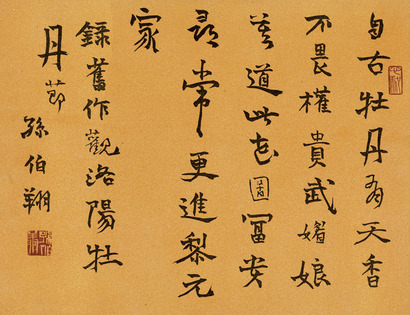 自古牡丹有天香
不畏權貴武媚娘
莫道此花圖冨貴
尋常更進黎元
家
錄舊作觀洛陽牡
丹節 孫伯翔